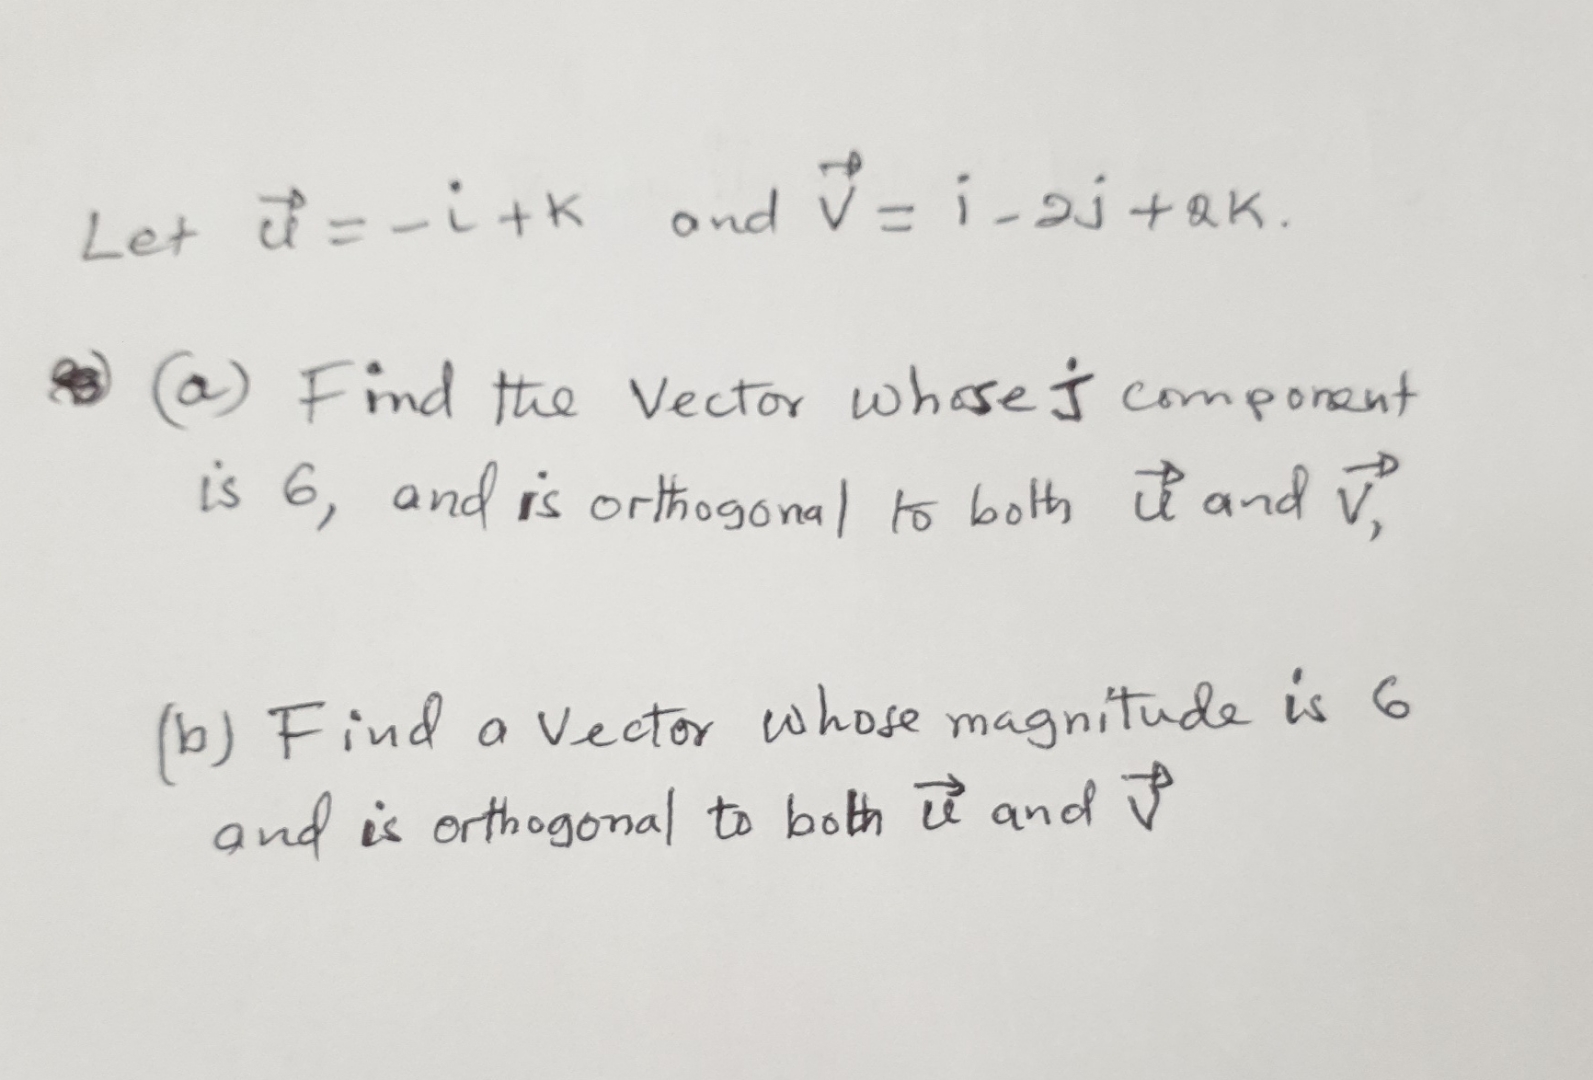 Let u⃗ = -i + k and v⃗ = i - 2j + 2k.
(a) Find the vector whose j component
is 6, and is orthogonal to both u⃗ and v⃗,
(b) Find a vector whose magnitude is 6
and is orthogonal to both u⃗ and v⃗